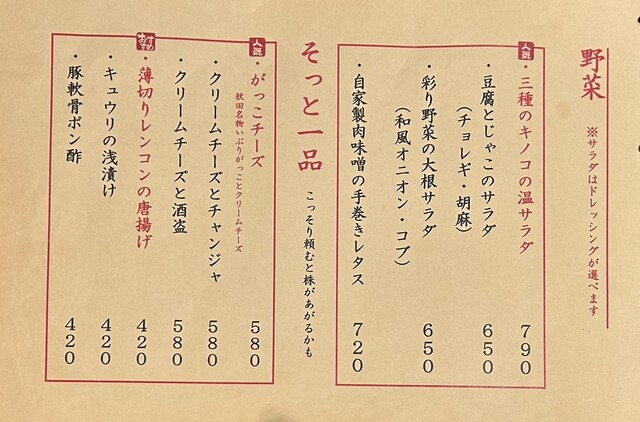 野菜
※サラダはドレッシングが選べます
人気
・三種のキノコの温サラダ 790
・豆腐とじゃこのサラダ 650
（チョレギ・胡麻）
・彩り野菜の大根サラダ 650
（和風オニオン・コブ）
・自家製肉味噌の手巻きレタス 720
そっと一品
こっそり頼むと株があがるかも
人気
・がっこチーズ 580
秋田名物いぶりがっことクリームチーズ
・クリームチーズとチャンジャ 580
・クリームチーズと酒盗 580
おすすめ
・薄切りレンコンの唐揚げ 420
・キュウリの浅漬け 420
・豚軟骨ポン酢 420